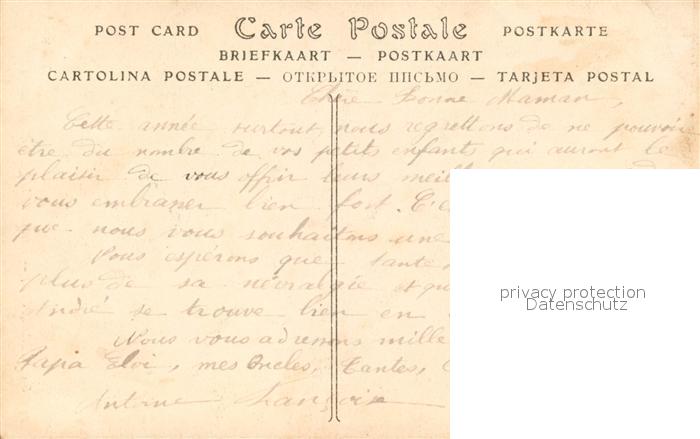 POST CARD Carte Postale POSTKARTE
BRIEFKAART — POSTKAART
CARTOLINA POSTALE — ОТКРЫТОЕ ПИСЬМО — TARJETA POSTAL
Chère Bonne Maman,
Cette année surtout, nous regrettons de ne pouvoir
être du nombre de vos petits enfants qui auront le
plaisir de vous offrir leurs
vous embrasser bien fort. C'e
que nous vous souhaitons une
Nous espérons que tante
plus de sa névralgie et qu
André se trouve bien en
Nous vous adressons mille
Papa Eloi, mes Oncles, Tantes,
Antoine François
privacy protection
Datenschutz